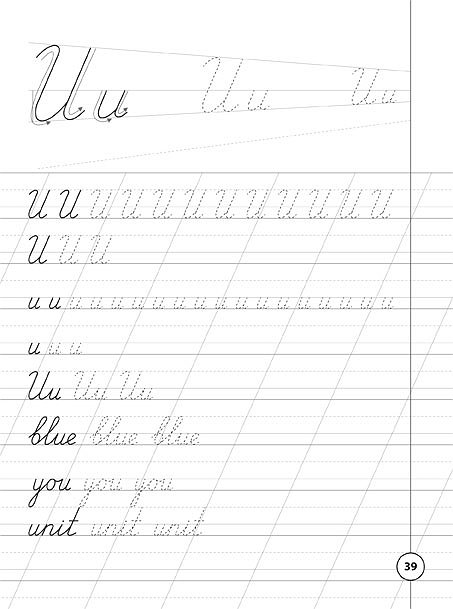 Uu Uu Uu
U U U U U U U U U U U U
U U U
u u u u u u u u u u u u u u u u u u
u u u
Uu Uu Uu
blue blue blue
you you you
unit unit unit
39